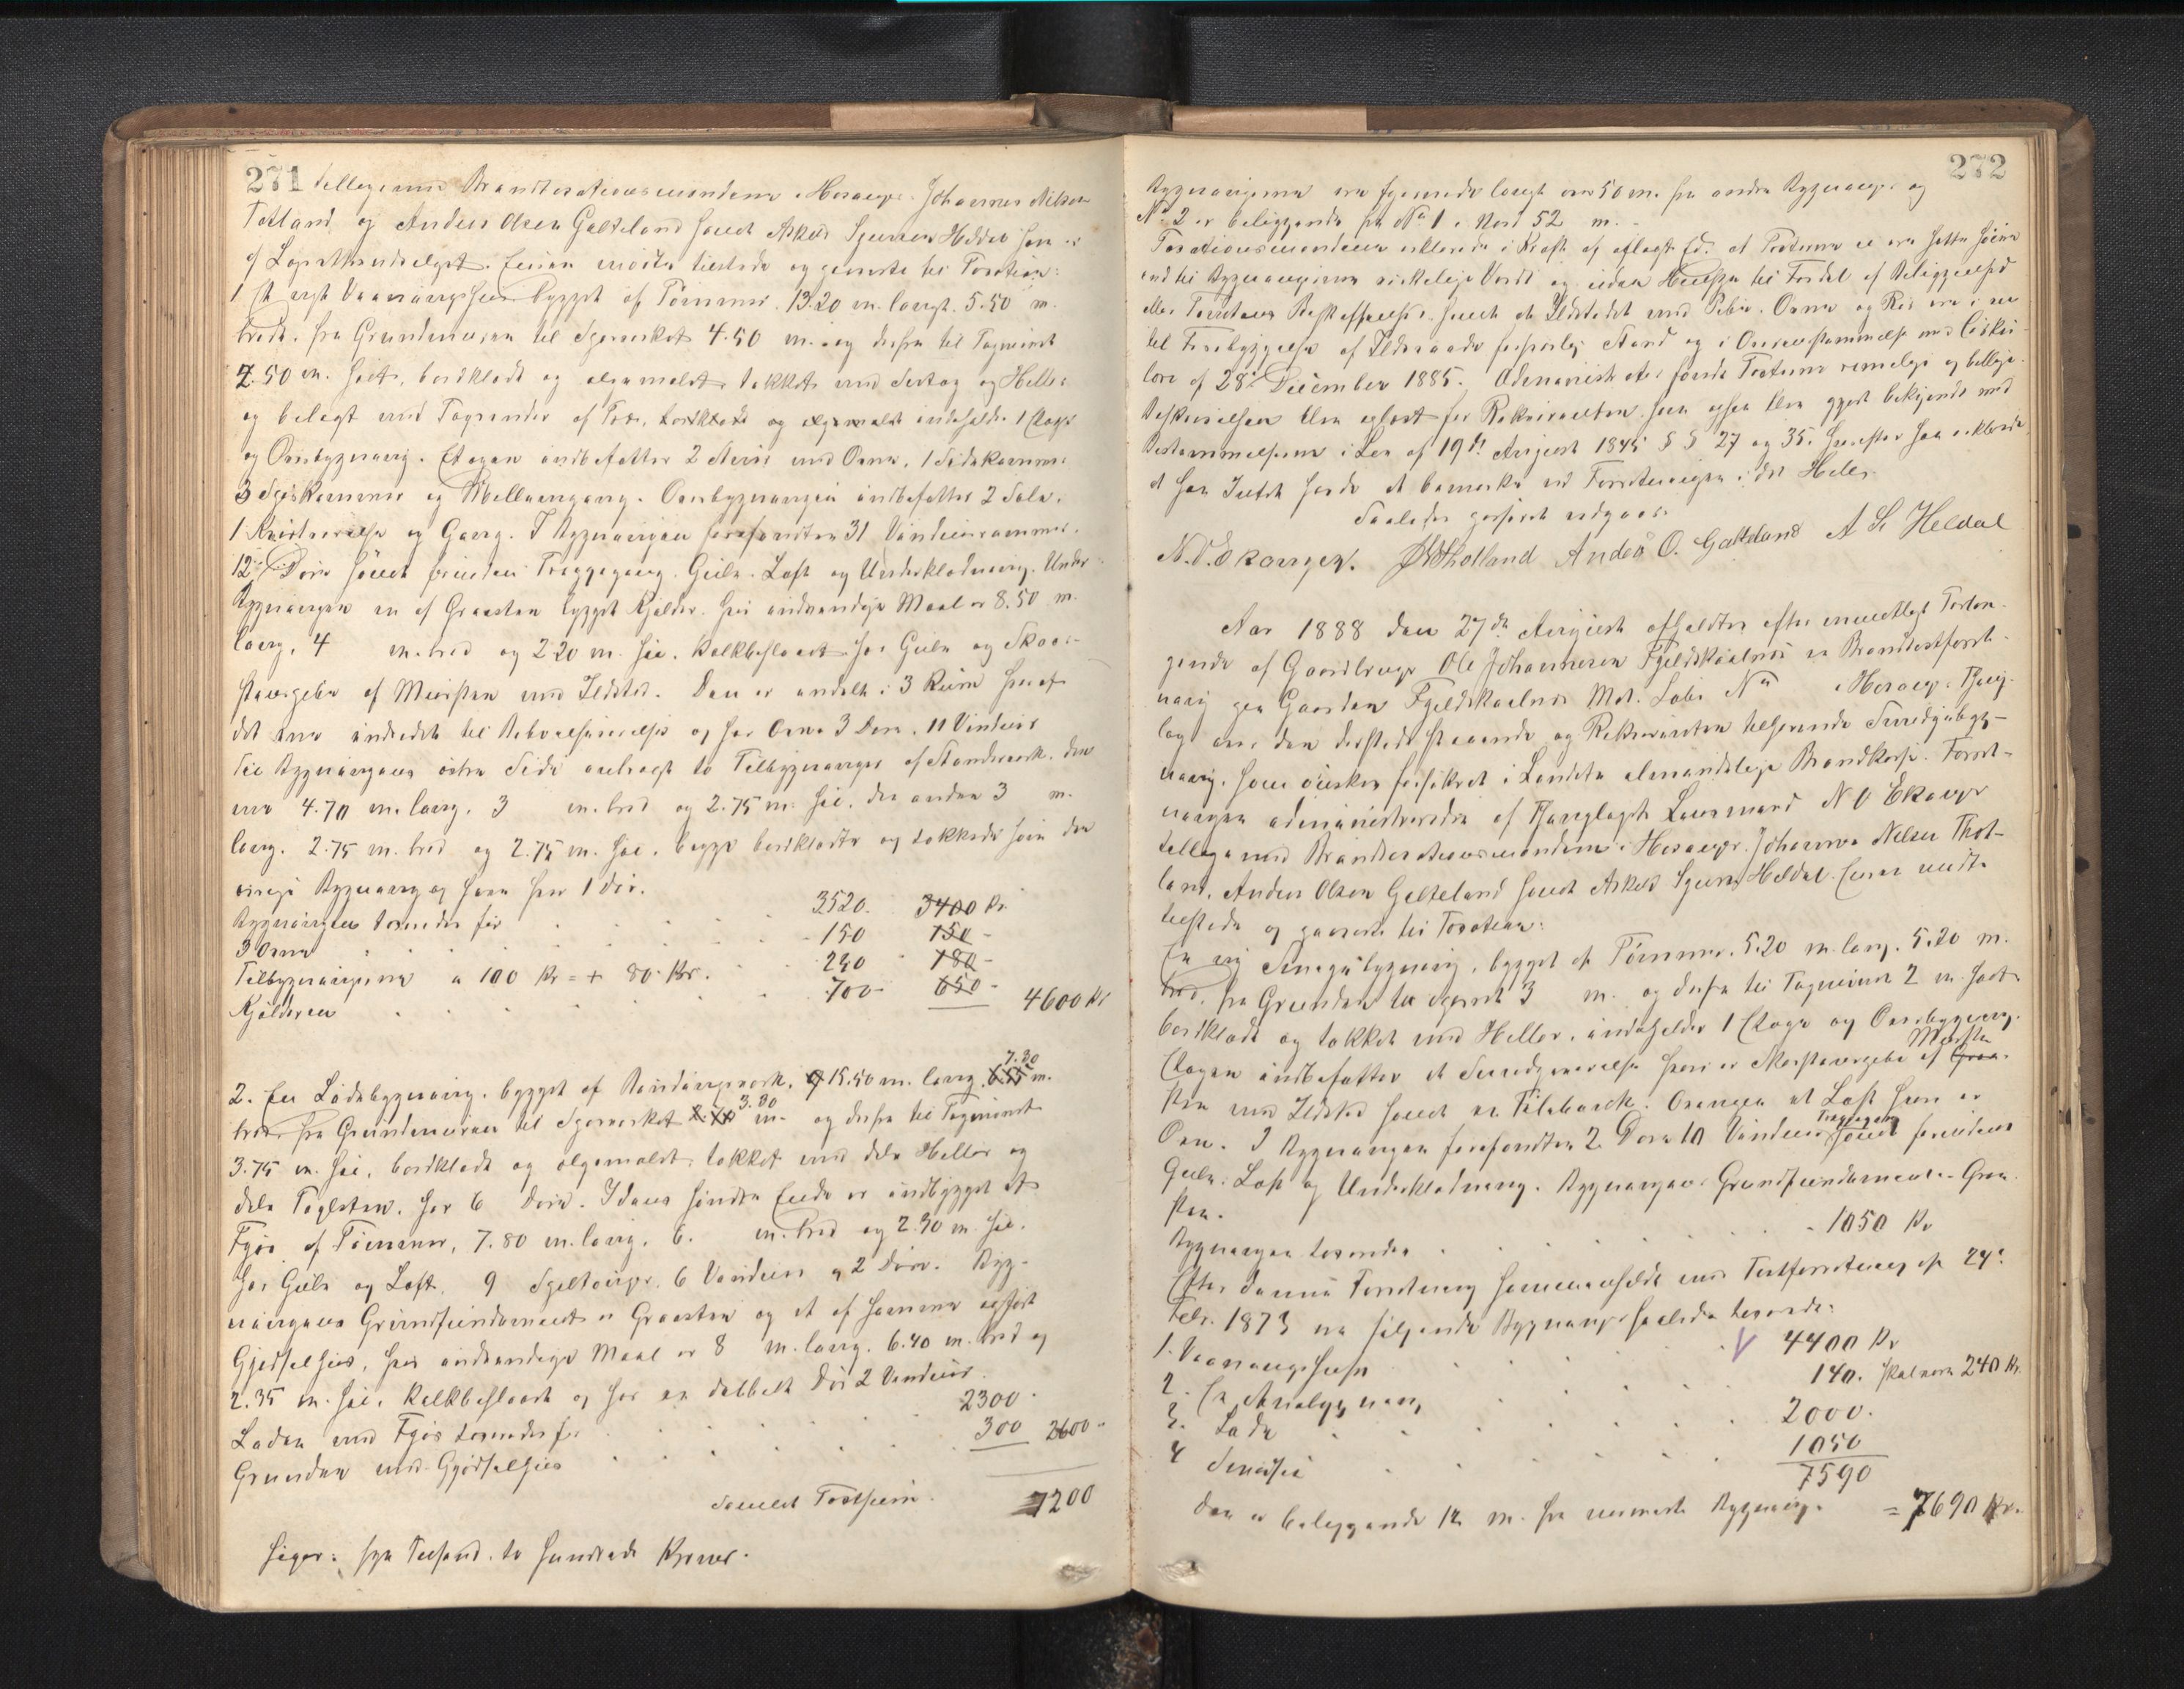 271
tilligemed Brandtaxationsmændene i Hosanger Johannes Nilsen
Totland og Anders Olsen Galteland samt Askild Sjursen Heldal som er
af Lagrettesudvalget. Enerne mødte tilstede og gaves til Taxation:
1 Et nyt Vaaningshus bygget af Tømmer. 13.20 m. langt. 5.50 m.
bredt. fra Grundmuren til Gesimsket 4.50 m. og derfra til Tagmønet
2.50 m. høit, bordklædt og oljemalet, tækket med og Heller
og belagt med af Træ, bordklædt og oljemalet indeholder 1 Etage
og Overbygning. Etagen indbefatter 2 Stuer med Ovne, 1 Sidekammer
3 Kammer og Mellemgang. Overbygningen indbefatter 2 Sale,
1 Kvistværelse og Gang. I Bygningen forefindtes 31 Vinduesrammer.
12 Døre samt fornøden Trappegang. Gulv. Loft og Underklædning. Under
Bygningen er af Graasten bygget Kjelder. hvis indvendige Maal er 8.50 m.
lang, 4 m. bred og 2.20 m. høi. Kalkbeslaaet har Gulv og Skor-
stenspibe af Mursten med Ildsted. Den er inddelt i 3 Rum hvoraf
det ene indredet til Beboelsesværelse og har Ovn 3 Døre, 11 Vinduer
Til Bygningens østre Side anbragt to Tilbygninger af Standværk. den
ene 4.70 m. lang, 3 m. bred og 2.75 m. høi, den anden 3 m.
lang. 2.75 m. bred og 2.75 m. høi, begge bordklædte og tækkede som den
øvrige Bygning og have hver 1 Dør.
Bygningen taxeredes for . . . 3520. 3400 Kr
3 Ovne . . . 150 150 -
Tilbygningerne a 100 Kr = + 80 Kr. . . 240 180 -
Kjelderen . . . 700 - 650 - 4600 Kr
2. En Ladebygning, bygget af Bindingsværk, 15.50 m. lang, 7.30 m.
bred, fra Grundmuren til Gesimsket 3.30 m. og derfra til Tagmønet
3.75 m. høi, bordklædt og oljemalet, tækket med dels Heller og
dels Taglsten, har 6 Døre. I dens søndre Ende er indbygget et
Fjøs af Tømmer, 7.80 m. lang, 6. m. bred og 2.30 m. høi.
har Gulv og Loft, 9 Spiltouge, 6 Vinduer og 2 Døre. Byg-
ningens Grundfundament er Graasten og et af samme opført
Gjødselhus, hvis indvendige Maal er 8 m. lang, 6.40 m. bred og
2.35 m. høi, Kalkbeslaaet og har en dobbelt Dør 2 Vinduer.
Laden med Fjøs taxeredes for . . . 2300 -
Grunden med Gjødselhus . . . 300 2600 -
Samlet Taxtsum. 7200
siger: syv Tusind to hundrede Kroner.
272
Bygningerne ere hver langt over 50 m. fra andre Bygninger og
No 2 er beliggende fra No 1 i Nord 52 m. -
Taxationsmændene erklærede i Kraft af aflagt Ed, at Taxterne ere satte
til Bygningernes virkelige Værdi og uden Hensyn til Fordel af Beliggenhed
eller Tomtens Beskaffenhed, samt at Ildstedet med Piber, Ovne og Rør ere i en
til Forebyggelse af Ildsvaade forsvarlig Stand og i Overensstemmelse med
lov af 28de December 1885. Administrator fandt Taxterne rimelige og billige.
Beskrivelsen blev oplæst for Rekvirenten som ogsaa blev gjort bekjendt med
Bestemmelserne i Lov af 19de August 1845 § § 27 og 35. hvorefter han erklærede
at han Intet havde at bemærke ved Forretningen i det Hele.
Saaledes passeret vedgaaes
N. O. Ekanger. J N Thotland Anders O. Galteland A. S. Heldal
Aar 1888 den 27de August afholdtes efter mundtligt Forlan-
gende af Gaardbruger Ole Johannesen Fjeldskaalnæs en Brandtaxtforret-
ning paa Gaarden Fjeldskaalnæs Mat. Løbe No i Hosanger Thing-
lag over den dersteds staaende og Rekvirenten tilhørende Smedjebyg-
ning, som ønskes forsikret i Landets almindelige Brandkasse. Forret-
ningen administreredes af Thinglagets Lensmand N O Ekanger
tilligemed Brandtaxationsmændene i Hosanger Johannes Nilsen Thot-
land, Anders Olsen Galteland samt Askild Sjursen Heldal. Enerne mødte
tilstede og gaves til Taxation:
En ny Smedjebygning, bygget af Tømmer, 5.20 m. lang. 5.20 m.
bred, fra Grunden til 3 m. og derfra til Tagmønet 2 m. høit
bordklædt og tækket med Heller, indeholder 1 Etage og Overbygning.
Etagen indbefatter et Smedjeværelse hvori er Skorstenspibe af Mursten Graa-
sten med Ildsted samt en Filebænk. Ovenpaa et Loft hvori er
Ovn. I Bygningen forefindtes 2 Døre 10 Vinduer Trappegang samt fornøden
Gulv. Loft og Underklædning. Bygningens Grundfundament er Graa-
sten.
Bygningen taxeredes . . . 1050 Kr
Efter denne Forretning sammenholdt med Taxtforretning af 24de
Febr. 1873 ere følgende Bygninger saaledes taxerede:
1. Vaaningshuset . . . V 4400 Kr
2. En Stuebygning . . . 140. skal være 240 Kr.
3. Lade . . . 2000.
4 Smedje . . . 1050
7590
Den er beliggende 12 m. fra nærmeste Bygning. = 7690 Kr.